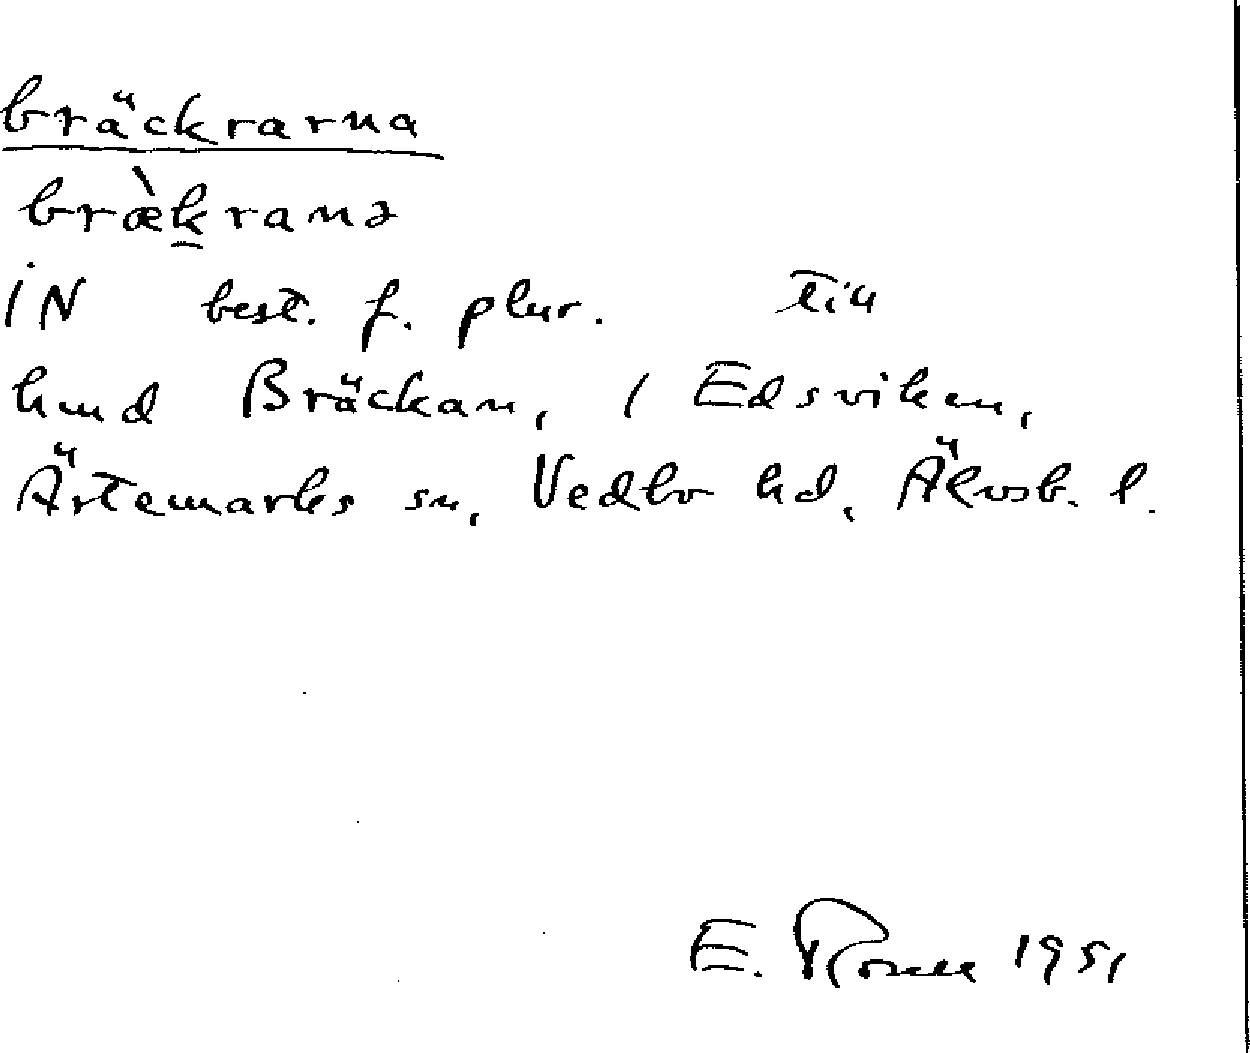 bräckrarna
bræ̀k̲ranə
iN best. f. plur. till
hmd Bräckan, i Edsviken,
Ärtemarks sn, Vedbo hd, Älvsb. l.
E. 1951